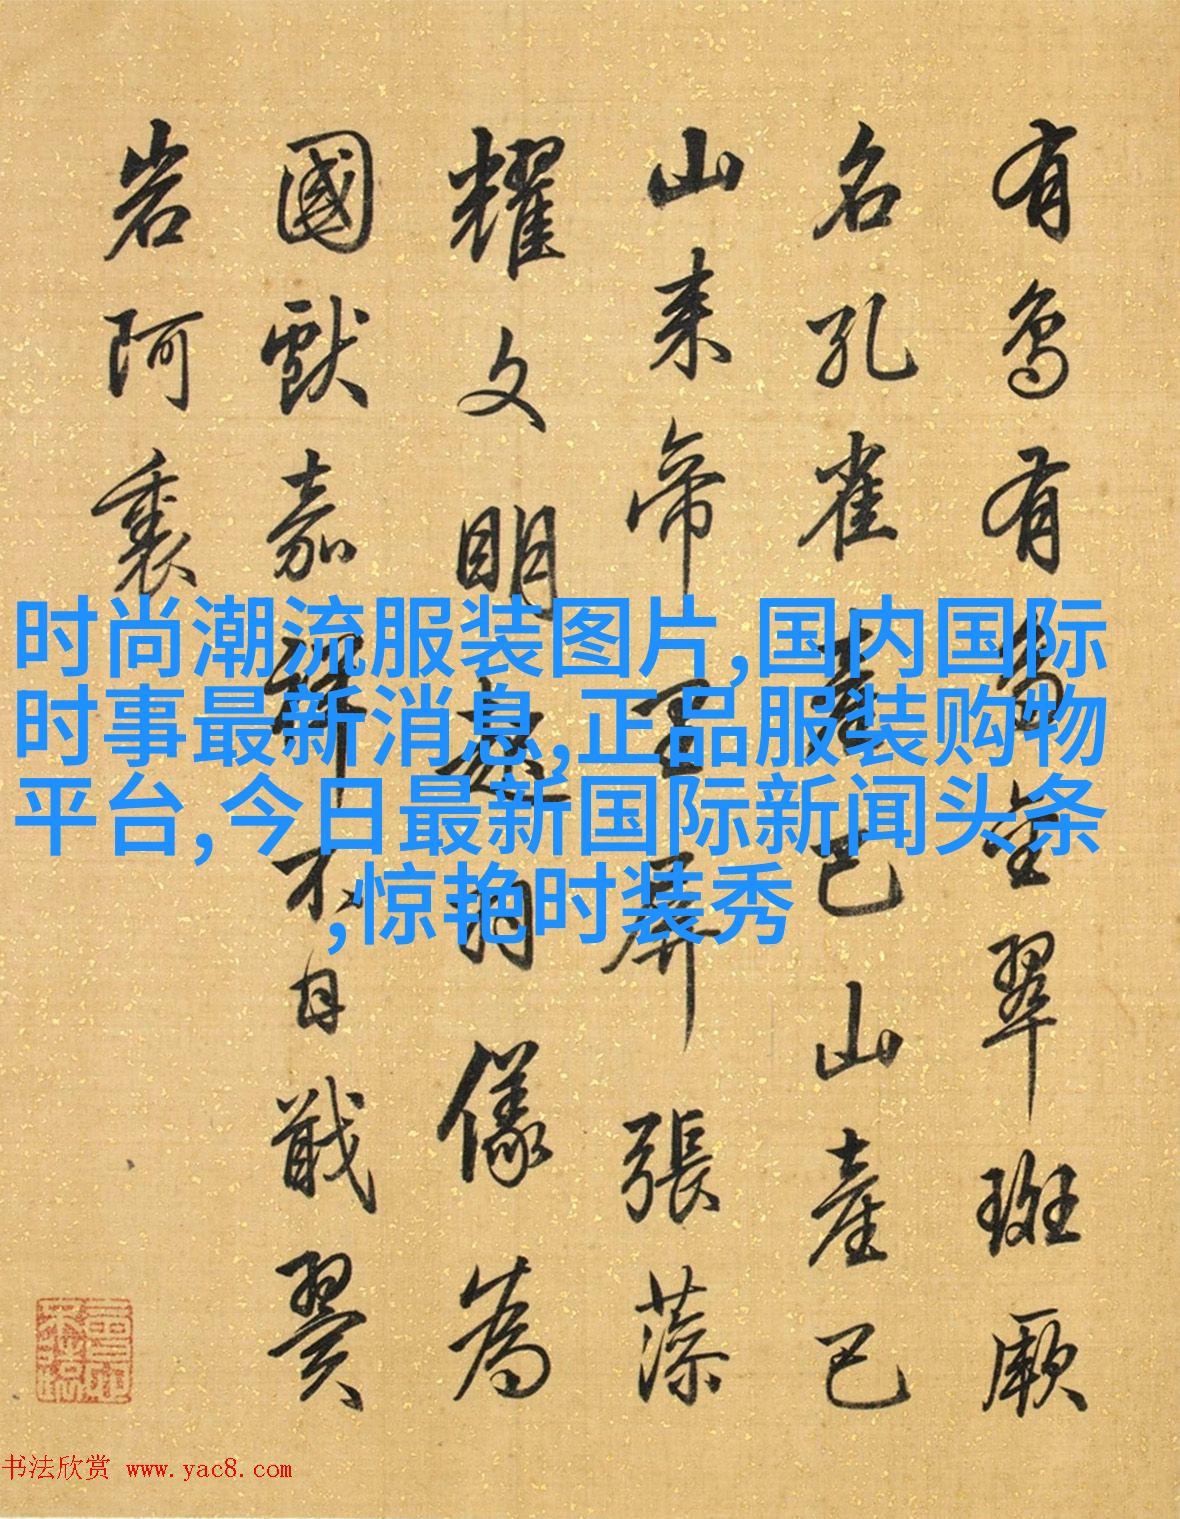 有鳥有鳥金翠斑厥
名孔雀產巴山產巴
山来帝王屏張藻
耀文明遠羽儀為
國獻嘉祥不自戢翼
岩阿裏
时尚潮流服装图片,国内国际
时事最新消息,正品服装购物
平台,今日最新国际新闻头条
,惊艳时装秀
书法欣赏 www.yac8.com